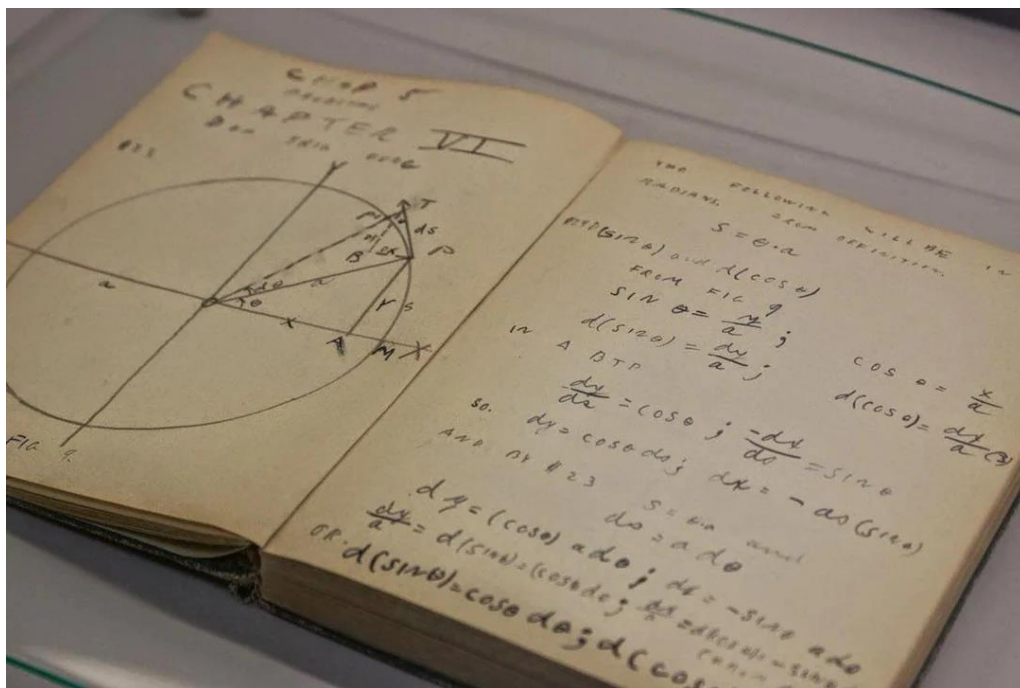 CHAP 5
PROBLEMS
CHAPTER VI
D OF TRIG FUNC
#23
Y
T
ds
P
B
dθ
a
a
θ
Y
S
O
X
A
M
X
FIG 9.
THE FOLLOWING WILL BE IN
RADIANS FROM DEFINITION
S = θ·a
d(sin θ) and d(cos θ)
FROM FIG 9
SIN θ = y/a ; COS θ = x/a
d(sin θ) = dy/a ; d(cos θ) = dx/a (3)
IN Δ BTP
dy/ds = cos θ ; -dx/ds = sin θ
SO. dy = cos θ ds ; dx = - ds (sin θ)
AND BY #23 S = θ·a and
ds = a dθ
dy = (cos θ) a dθ ; dx = - sin θ a dθ
dy/a = d(sin θ) = cos θ dθ ;
OR. d(sin θ) = cos θ dθ ; d(cos